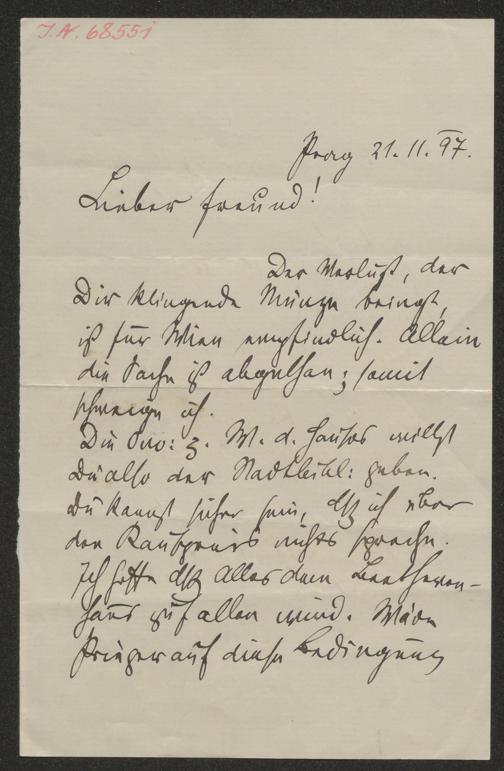 J.N. 68551
Prag 21.11.97.
Lieber Freund!
Der Verlust, der
Dir klingende Münze bringt,
ist für Wien empfindlich. Allein
die Sache ist abgethan; somit
schweige ich.
Die z. W. d. Hauses willst
Du also der geben.
Du kannst sicher sein, dß ich über
den Kaufpreis nichts spreche.
Ich hoffe dß alles dem Beethoven-
haus zufallen wird. Wäre
Prieger auf diese Bedingung